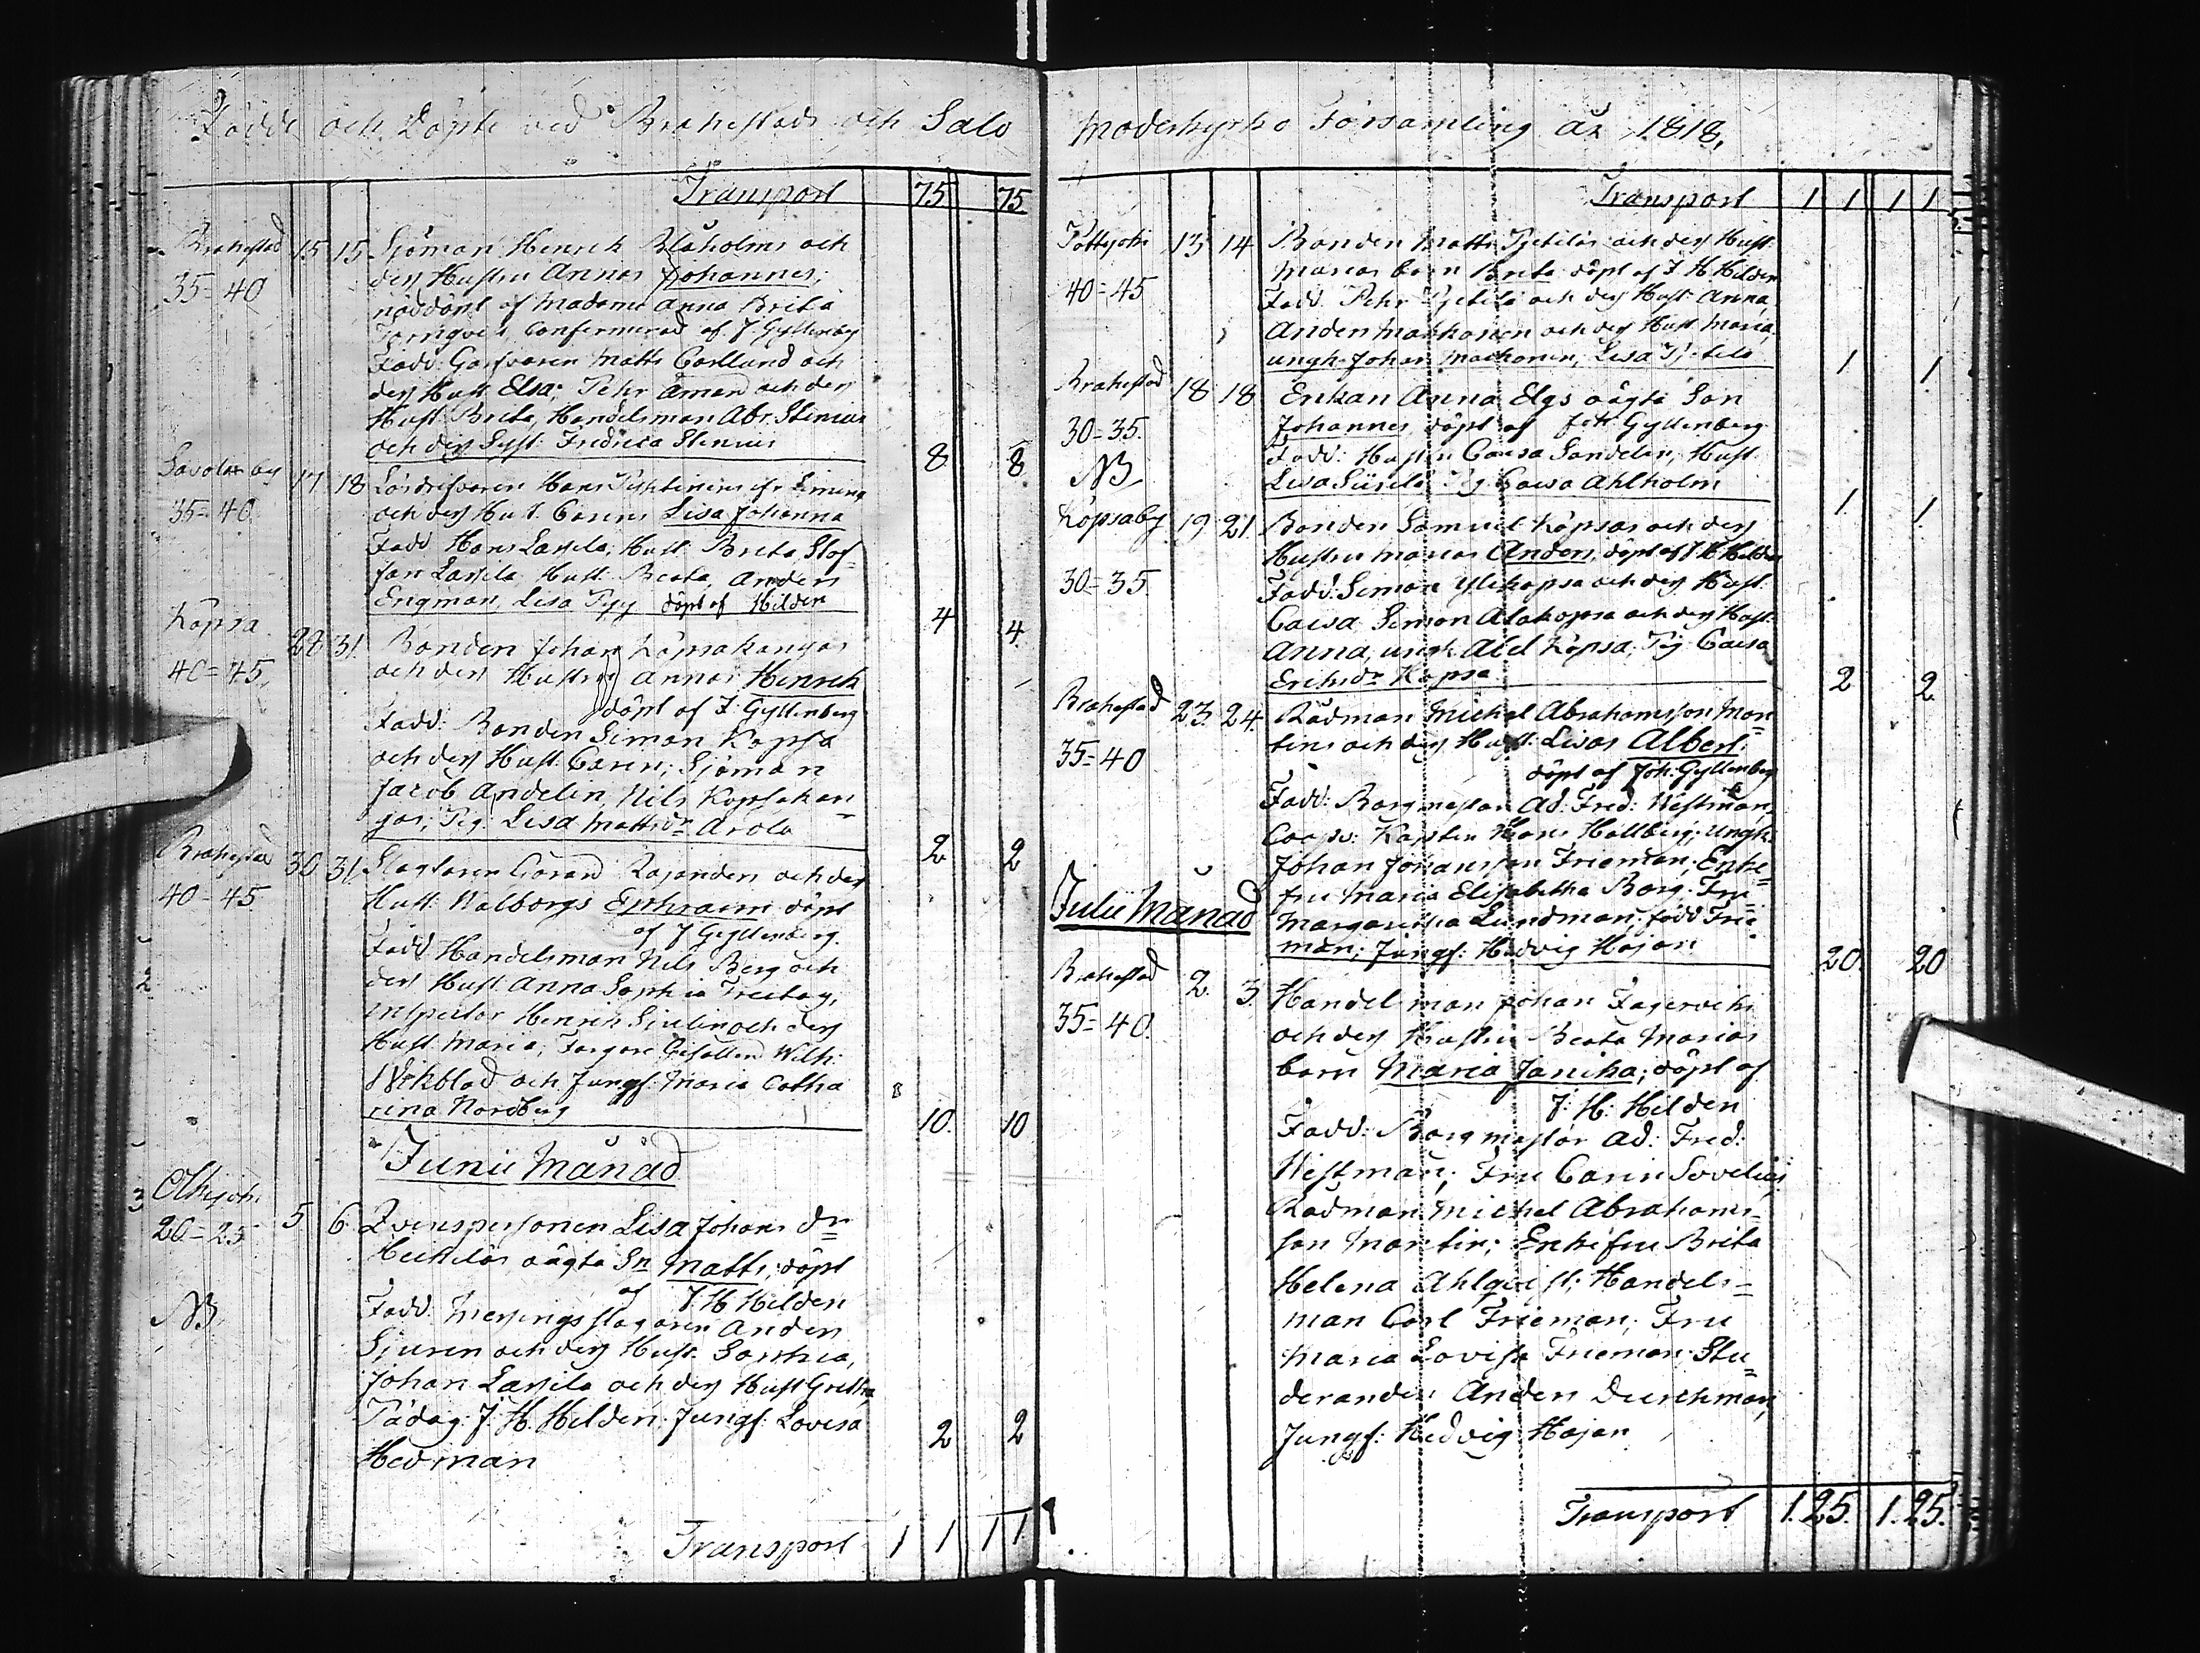 Födde och Döpte vid Brahestads och Salo
Transport 75 75
Brahestad 15 15 Sjöman Henrik Blåholms och
35=40 dess Hustru Annas Johannes;
nöddöpt af Madame Anna Brita
confirmerad af J. Gyllenberg
Fadd: Garfvaren Matts Carllund och
dess Hust Elsa; Pehr Åman och dess
Hust Brita, Handelsman Abr. Stenius
och dess Syst. Fredrica Stenius 8 8
Savolax by 17 18 Lösdrifvaren Hans
35=40 och dess Hust. Carins Lisa Johanna
Fadd Hans Lassila, Hust. Brita, Stof
fan Lassila Hust. Beata, Anders
Engman, Lisa Pyy döpt af Hilden 4 4
Kopsa 28 31 Bonden Johan Kopsakangas
40=45 och dess Hustru Annas Henrik
döpt af J. Gyllenberg
Fadd: Bonden Simon Kopsa
och dess Hust. Carin; Sjöman
Jacob Andelin, Nils Kopsakan=
gas; Pig. Lisa Mattsdr Arola 2 2
Brahestad 30 31 Slagtaren Göran Rajanders och dess
40-45 Hust. Walborgs Ephraim döpt
af J Gyllenberg.
Fadd Handelsman Nils Berg och
dess Hust Anna Sophia Freitag,
inspector Henrik Siulin och dess
Hust Maria, Färgare Gesällen Wilh:
Wikblad och Jungf. Maria Catha
rina Nordberg 10 10
Junii Månad
Olkijoki 5 6 Qvinspersonen Lisa Johans dr
20=25 Heikiläs oägta Sn Matts; döpt
af J H Hilden
NB Fadd: Messingsslagaren Anders
Sjuren och dess Hust. Sophia,
Johan Lassila och dess Hust Gretha,
Pädag: J. H. Hilden, Jungf. Lovisa
Hedman 2 2
Transport 1 1 1 1
Moderkyrko Församling år 1818,
Transport 1 1 1 1
Pattijoki 13 14 Bonden Matts Pjetiläs och dess Hust.
40=45 Marias barn Brita döpt af J. H. Hilden
Fadd: Pehr Pjetilä och dess Hust. Anna,
Anders Markonen och dess Hust Maria,
ungk. Johan Markonen, Lisa Pjetilä 1 1
Brahestad 18 18 Enkan Anna Elgs oägta Son
30=35. Johannes döpt af Joh: Gyllenberg
NB Fadd: Hustru Caisa Sandelin, Hust
Lisa Siirila Pig Caisa Ahlholm 1 1
Kopsaby 19 21 Bonden Samuel Kopsas och dess
30=35 Hustru Marias Anders, döpt af J H Hilden
Fadd: Simon Ylikopsa och dess Hust.
Caisa Simon Alakopsa och dess Hust.
Anna, ungk. Abel Kopsa, Pig Caisa
Eriksdr Kopsa 2 2
Brahestad 23 24 Rådman Michel Abrahamsson Mar
35=40 tins och dess Hust: Lisas Albert:
döpt af Joh: Gyllenberg
Fadd: Borgmästar Ad: Fred: Westman,
Coopv: Kapten Hans Hallberg; ungk:
Johan Johansson Frieman, Enke=
fru Maria Elisabetha Borg. Fru
Margaretha Lundman, född Frie
man; Jungf: Hedvig Hajan 20 20
Julii Månad
Brahestad 2. 3. Handelsman Johan Fagerviks
35=40. och dess Hustru Beata Marias
barn Maria Janika; döpt af
J: H: Hilden
Fadd: Borgmästar Ad: Fred:
Westman; Fru Carin Sovelius
Rådman Michel Abrahams=
son Martin; Enkefru Brita
Helena Ahlqvist; Handels=
man Carl Frieman, Fru
Maria Lovisa Frieman Stu=
deranden Anders Durchman,
Jungf: Hedvig Hajan
Transport 1.25. 1.25.